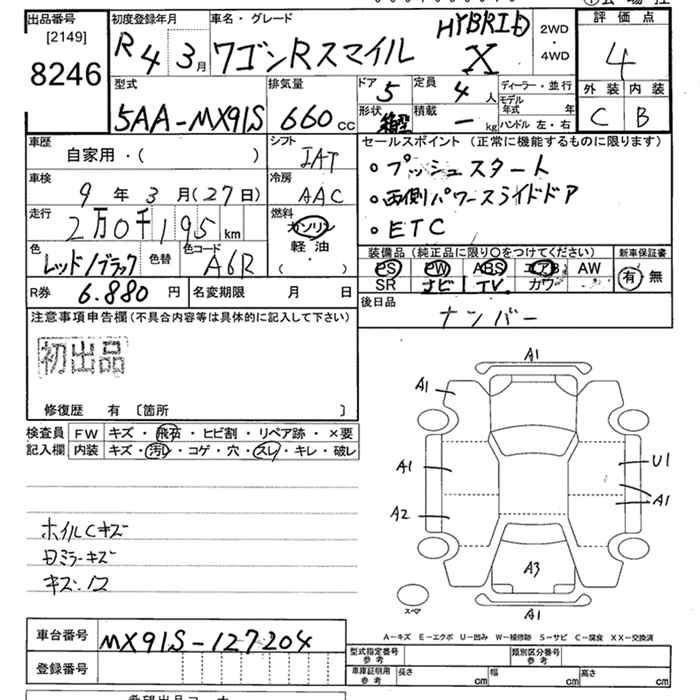 出品番号
[2149]
8246
初度登録年月
R4 3月
車名・グレード
ワゴンRスマイル
HYBRID
X
2WD
・
4WD
評価点
4
型式
5AA-MX91S
排気量
660 cc
ドア
5
定員
4人
形状
積載
- kg
ディーラー・並行
モデル年式 年
ハンドル 左・右
外装 内装
C B
車歴
自家用・( )
シフト
IAT
セールスポイント (正常に機能するものに限ります)
・プッシュスタート
・両側パワースライドドア
・ETC
車検
9年3月(27日)
冷房
AAC
走行
2万0千195km
燃料
ガソリン
軽油
( )
色
レッド/ブラック
色替
色コード
A6R
装備品 (純正品に限り○をつけてください)
PS PW ABS エアB AW
SR ナビ TV カワ
新車保証書
有 無
R券
6.880円
名変期限 月 日
後日品
ナンバー
注意事項申告欄(不具合内容等は具体的に記入して下さい)
初出品
修復歴 有 〔箇所 〕
検査員記入欄
FW キズ・飛石・ヒビ割・リペア跡・×要
内装 キズ・汚レ・コゲ・穴・スレ・キレ・破レ
ホイルCキズ
Dミラーキズ
キズ.凹ス
A1
A1
A1
U1
A1
A2
A3
A1
スペア
A-キズ E-エクボ U-凹み W-補修跡 S-サビ C-腐食 XX-交換済
車台番号
MX91S-127204
登録番号
型式指定番号
参考
類別区分番号
参考
車庫証明用
参考
長さ cm
幅 cm
高さ cm